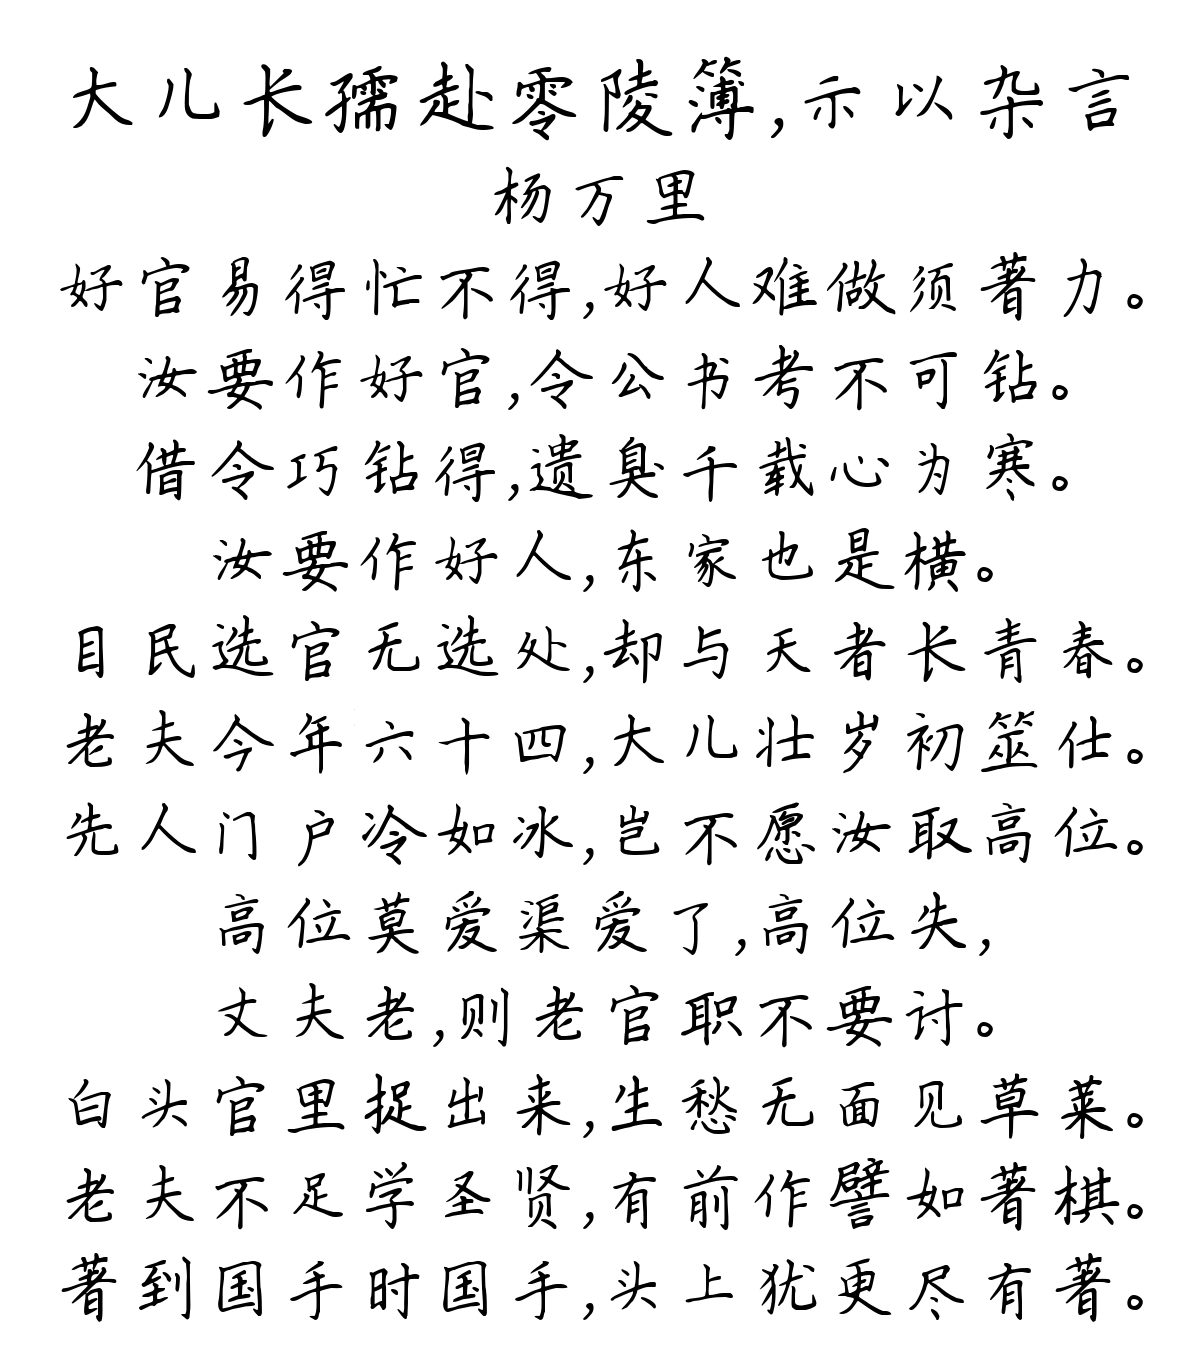 大儿长孺赴零陵簿,示以杂言
杨万里
好官易得忙不得,好人难做须著力。
汝要作好官,令公书考不可钻。
借令巧钻得,遗臭千载心为寒。
汝要作好人,东家也是横。
目民选官无选处,却与天者长青春。
老夫今年六十四,大儿壮岁初筮仕。
先人门户冷如冰,岂不愿汝取高位。
高位莫爱渠爱了,高位失,
丈夫老,则老官职不要讨。
白头官里捉出来,生愁无面见草莱。
老夫不足学圣贤,有前作譬如著棋。
著到国手时国手,头上犹更尽有著。